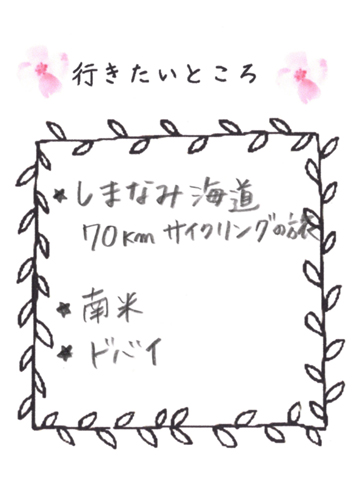 行きたいところ
★しまなみ海道
70kmサイクリングの旅
★南米
★ドバイ